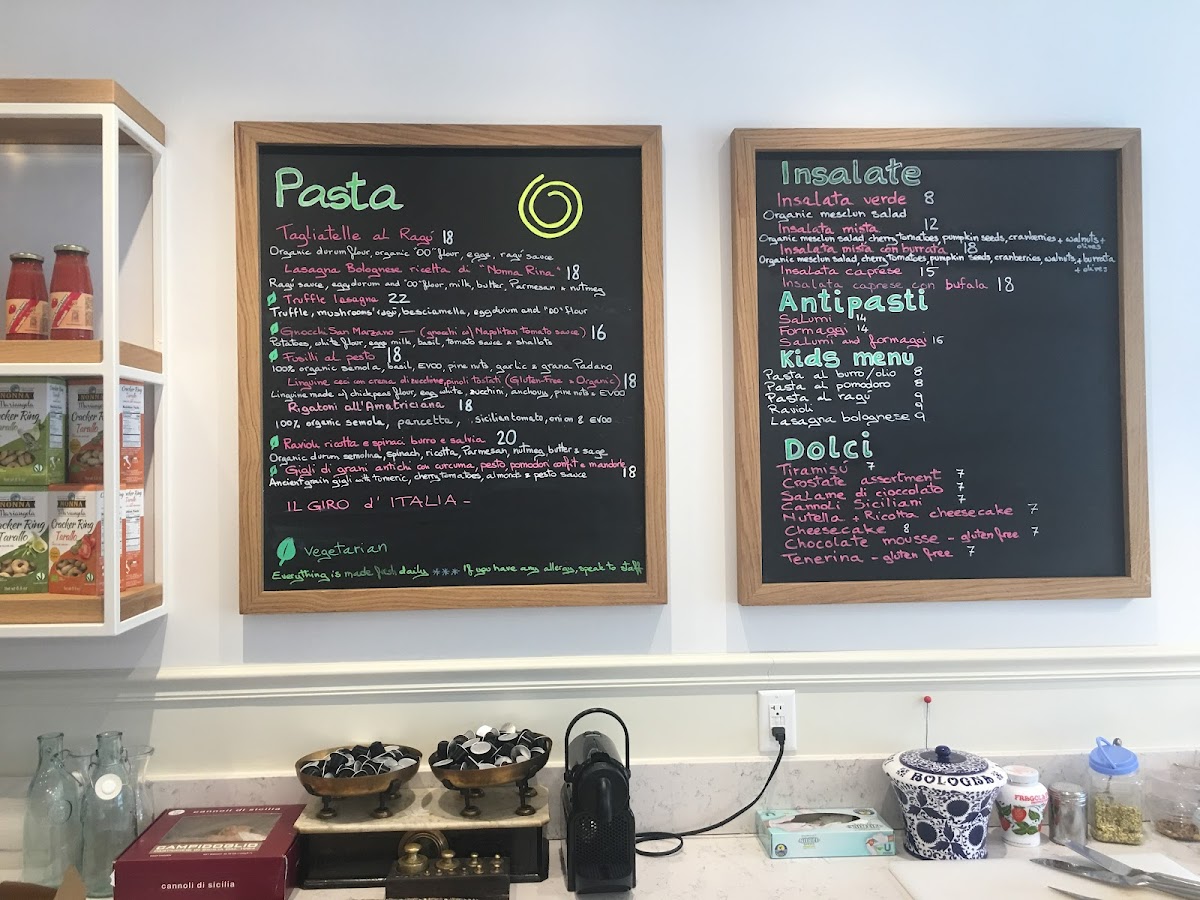 Pasta
Tagliatelle al Ragú 18
Organic durum flour, organic "00" flour, eggs, ragú sauce
Lasagna Bolognese ricetta di "Nonna Rina" 18
Ragú sauce, egg durum and "00" flour, milk, butter, Parmesan & nutmeg
Truffle lasagna 22
Truffle, mushrooms' ragú, besciamella, egg durum and "00" flour
Gnocchi San Marzano — (gnocchi w/ Napolitan tomato sauce) 16
Potatoes, white flour, eggs, milk, basil, tomato sauce & shallots
Fusilli al pesto 18
100% organic semola, basil, EVOO, pine nuts, garlic & grana Padano
Linguine ceci con crema di zucchine, pinoli tostati (Gluten-Free & Organic) 18
Linguine made w/ chickpeas flour, egg white, zucchini, anchovy, pine nuts & EVOO
Rigatoni all'Amatriciana 18
100% organic semola, pancetta, sicilian tomato, onion & EVOO
Ravioli ricotta e spinaci burro e salvia 20
Organic durum semolina, spinach, ricotta, Parmesan, nutmeg, butter & sage
Gigli di grani antichi con curcuma, pesto, pomodori confit e mandorle
Ancient grain gigli with tumeric, cherry tomatoes, almonds & pesto sauce 18
IL GIRO d' ITALIA -
vegetarian
Everything is made fresh daily *** If you have any allergy, speak to staff
Insalate
Insalata verde 8
Organic mesclun salad
Insalata mista 12
Organic mesclun salad, cherry tomatoes, pumpkin seeds, cranberries + walnuts +
olives
Insalata mista con burrata 18
Organic mesclun salad, cherry tomatoes, pumpkin seeds, cranberries, walnuts, + burrata
+ olives
Insalata caprese 15
Insalata caprese con bufala 18
Antipasti
Salumi 14
Formaggi 14
Salumi and formaggi 16
Kids menu
Pasta al burro/olio 8
Pasta al pomodoro 8
Pasta al ragú 9
Ravioli 9
Lasagna bolognese 9
Dolci
Tiramisú 7
Crostate assortment 7
Salame di cioccolato 7
Cannoli Siciliani 7
Nutella + Ricotta cheesecake 7
Cheesecake 8
Chocolate mousse - gluten free 7
Tenerina - gluten free 7
NONNA
Mariangela
Cracker Ring
Tarallo
NONNA
Cracker Ring
Tarallo
cannoli di sicilia
CAMPIDOGLIO
cannoli di sicilia
BOLOGNA